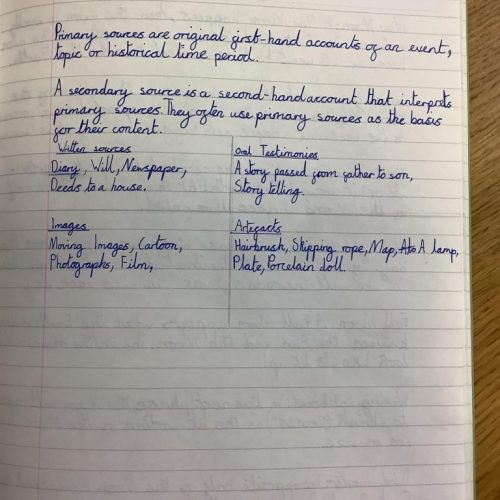 Primary sources are original first-hand accounts of an event,
topic or historical time period.
A secondary source is a second-hand account that interprets
primary sources. They often use primary sources as the basis
for their content.
Written sources
Diary, Will, Newspaper,
Deeds to a house.
Oral Testimonies
A story passed from father to son,
Story telling.
Images
Moving Images, Cartoon,
Photographs, Film,
Artefacts
Hairbrush, Skipping rope, Map, A to A Lamp,
Plate, Porcelain doll.